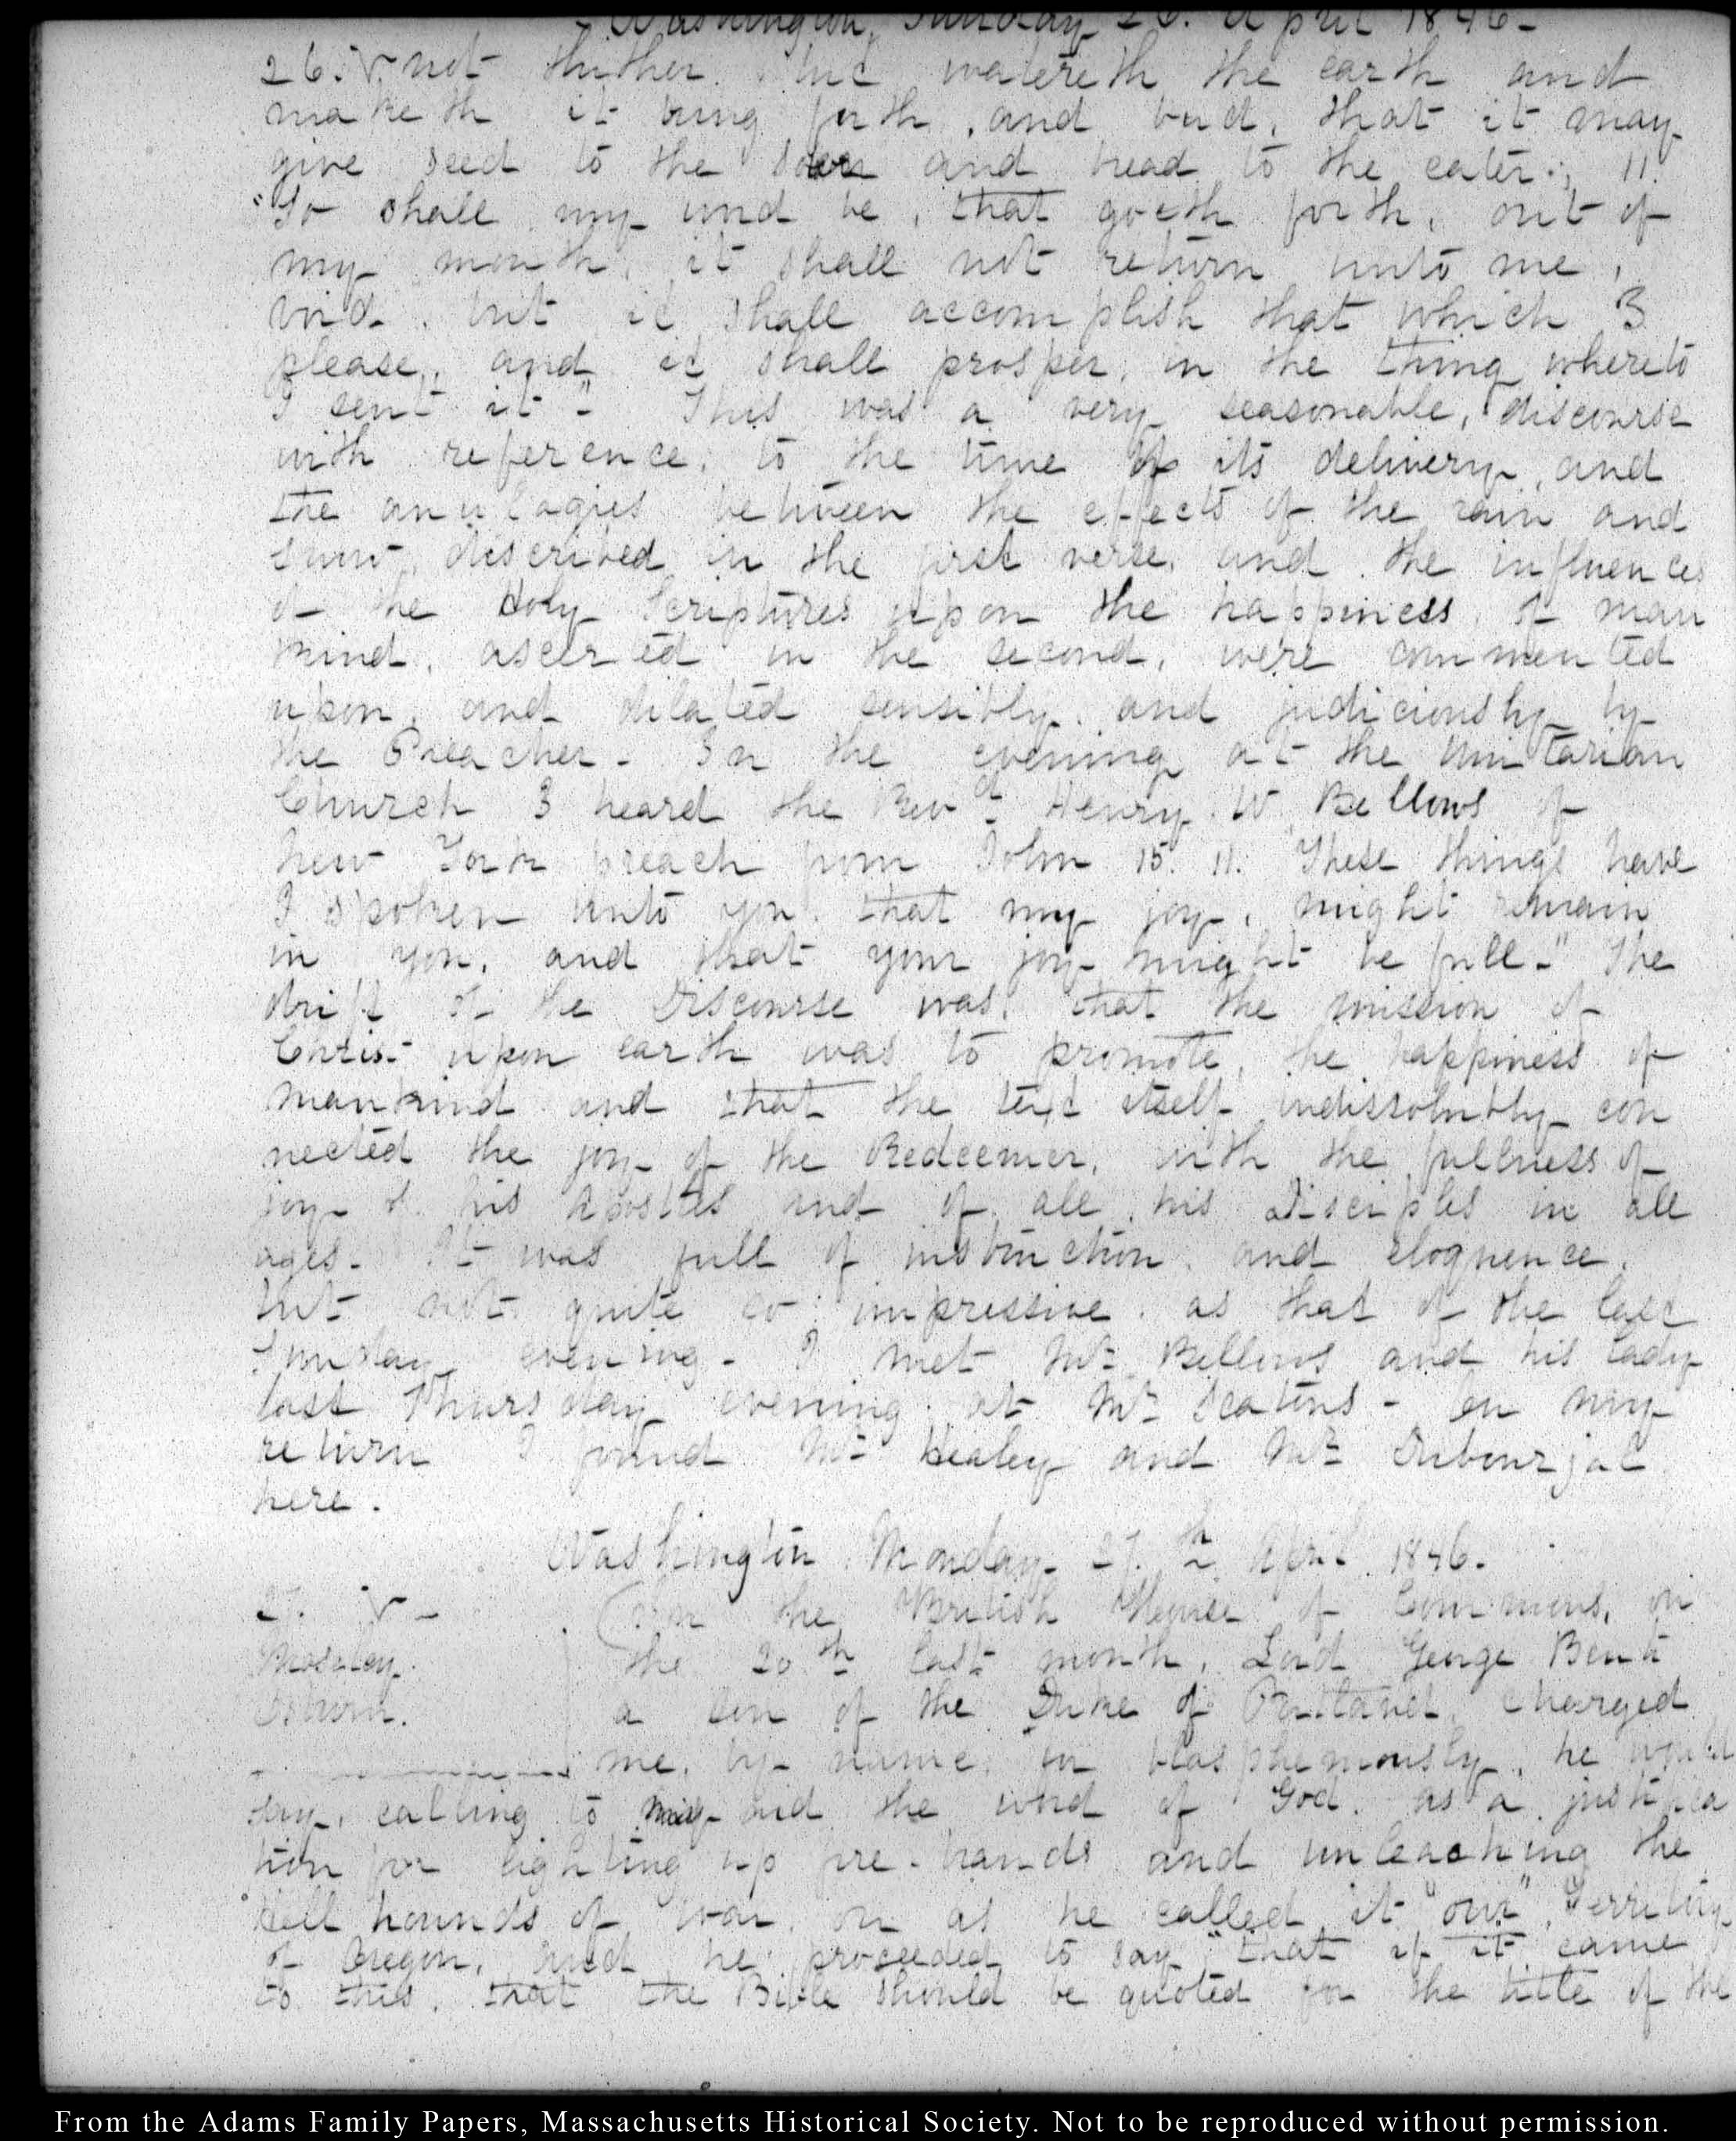 Washington, Sunday 26. April 1846-
26. V. not thither but watereth the earth and
maketh it bring forth, and bud, that it may
give seed to the sower and bread to the eater:, 11.
"So shall my word be, that goeth forth, out of
my mouth, it shall not return unto me,
void. but it shall accomplish that which I
please, and it shall prosper, in the thing whereto
I sent it"- This was a very seasonable, discourse
with reference, to the time of its delivery, and
the analogies between the effects of the rain and
snow, described in the first verse, and the influences
of the Holy Scriptures upon the happiness of man
kind, asserted in the second, were commented
upon, and dilated sensibly, and judiciously by
the Preacher- In the evening at the Unitarian
Church I heard the Revd. Henry W Bellows of
New York preach from John 15. 11. "These things have
I spoken unto you, that my joy, might remain
in you, and that your joy might be full-" The
drift of the Discourse was, that the mission of
Christ upon earth was to promote, the happiness of
mankind and that the text itself indissolubly con
nected the joy of the Redeemer, with the fullness of
joy of his Apostles and of all his Disciples in all
ages- It was full of instruction, and eloquence,
but not quite so impressive, as that of the last
Sunday evening- I met Mr. Bellows and his lady
last Thursday evening at Mr. Seatons- On my
return I found Mr. Healey and Mr. Dubourjal
here.
Washington Monday 27.th April 1846.
27. V- In the British House of Commons, on
Moseley. the 20th last month, Lord George Bent
Osborn. a son of the Duke of Portland, charged
me, by name, for blasphemously, he would
say, calling to my aid the word of God, as a justifica
tion for lighting up fire-brands and unleashing the
hell hounds of war, on as he called it "our" Territory
of Oregon, and he proceeded to say "that if it came
to this, that the Bible should be quoted for the title of the
From the Adams Family Papers, Massachusetts Historical Society. Not to be reproduced without permission.